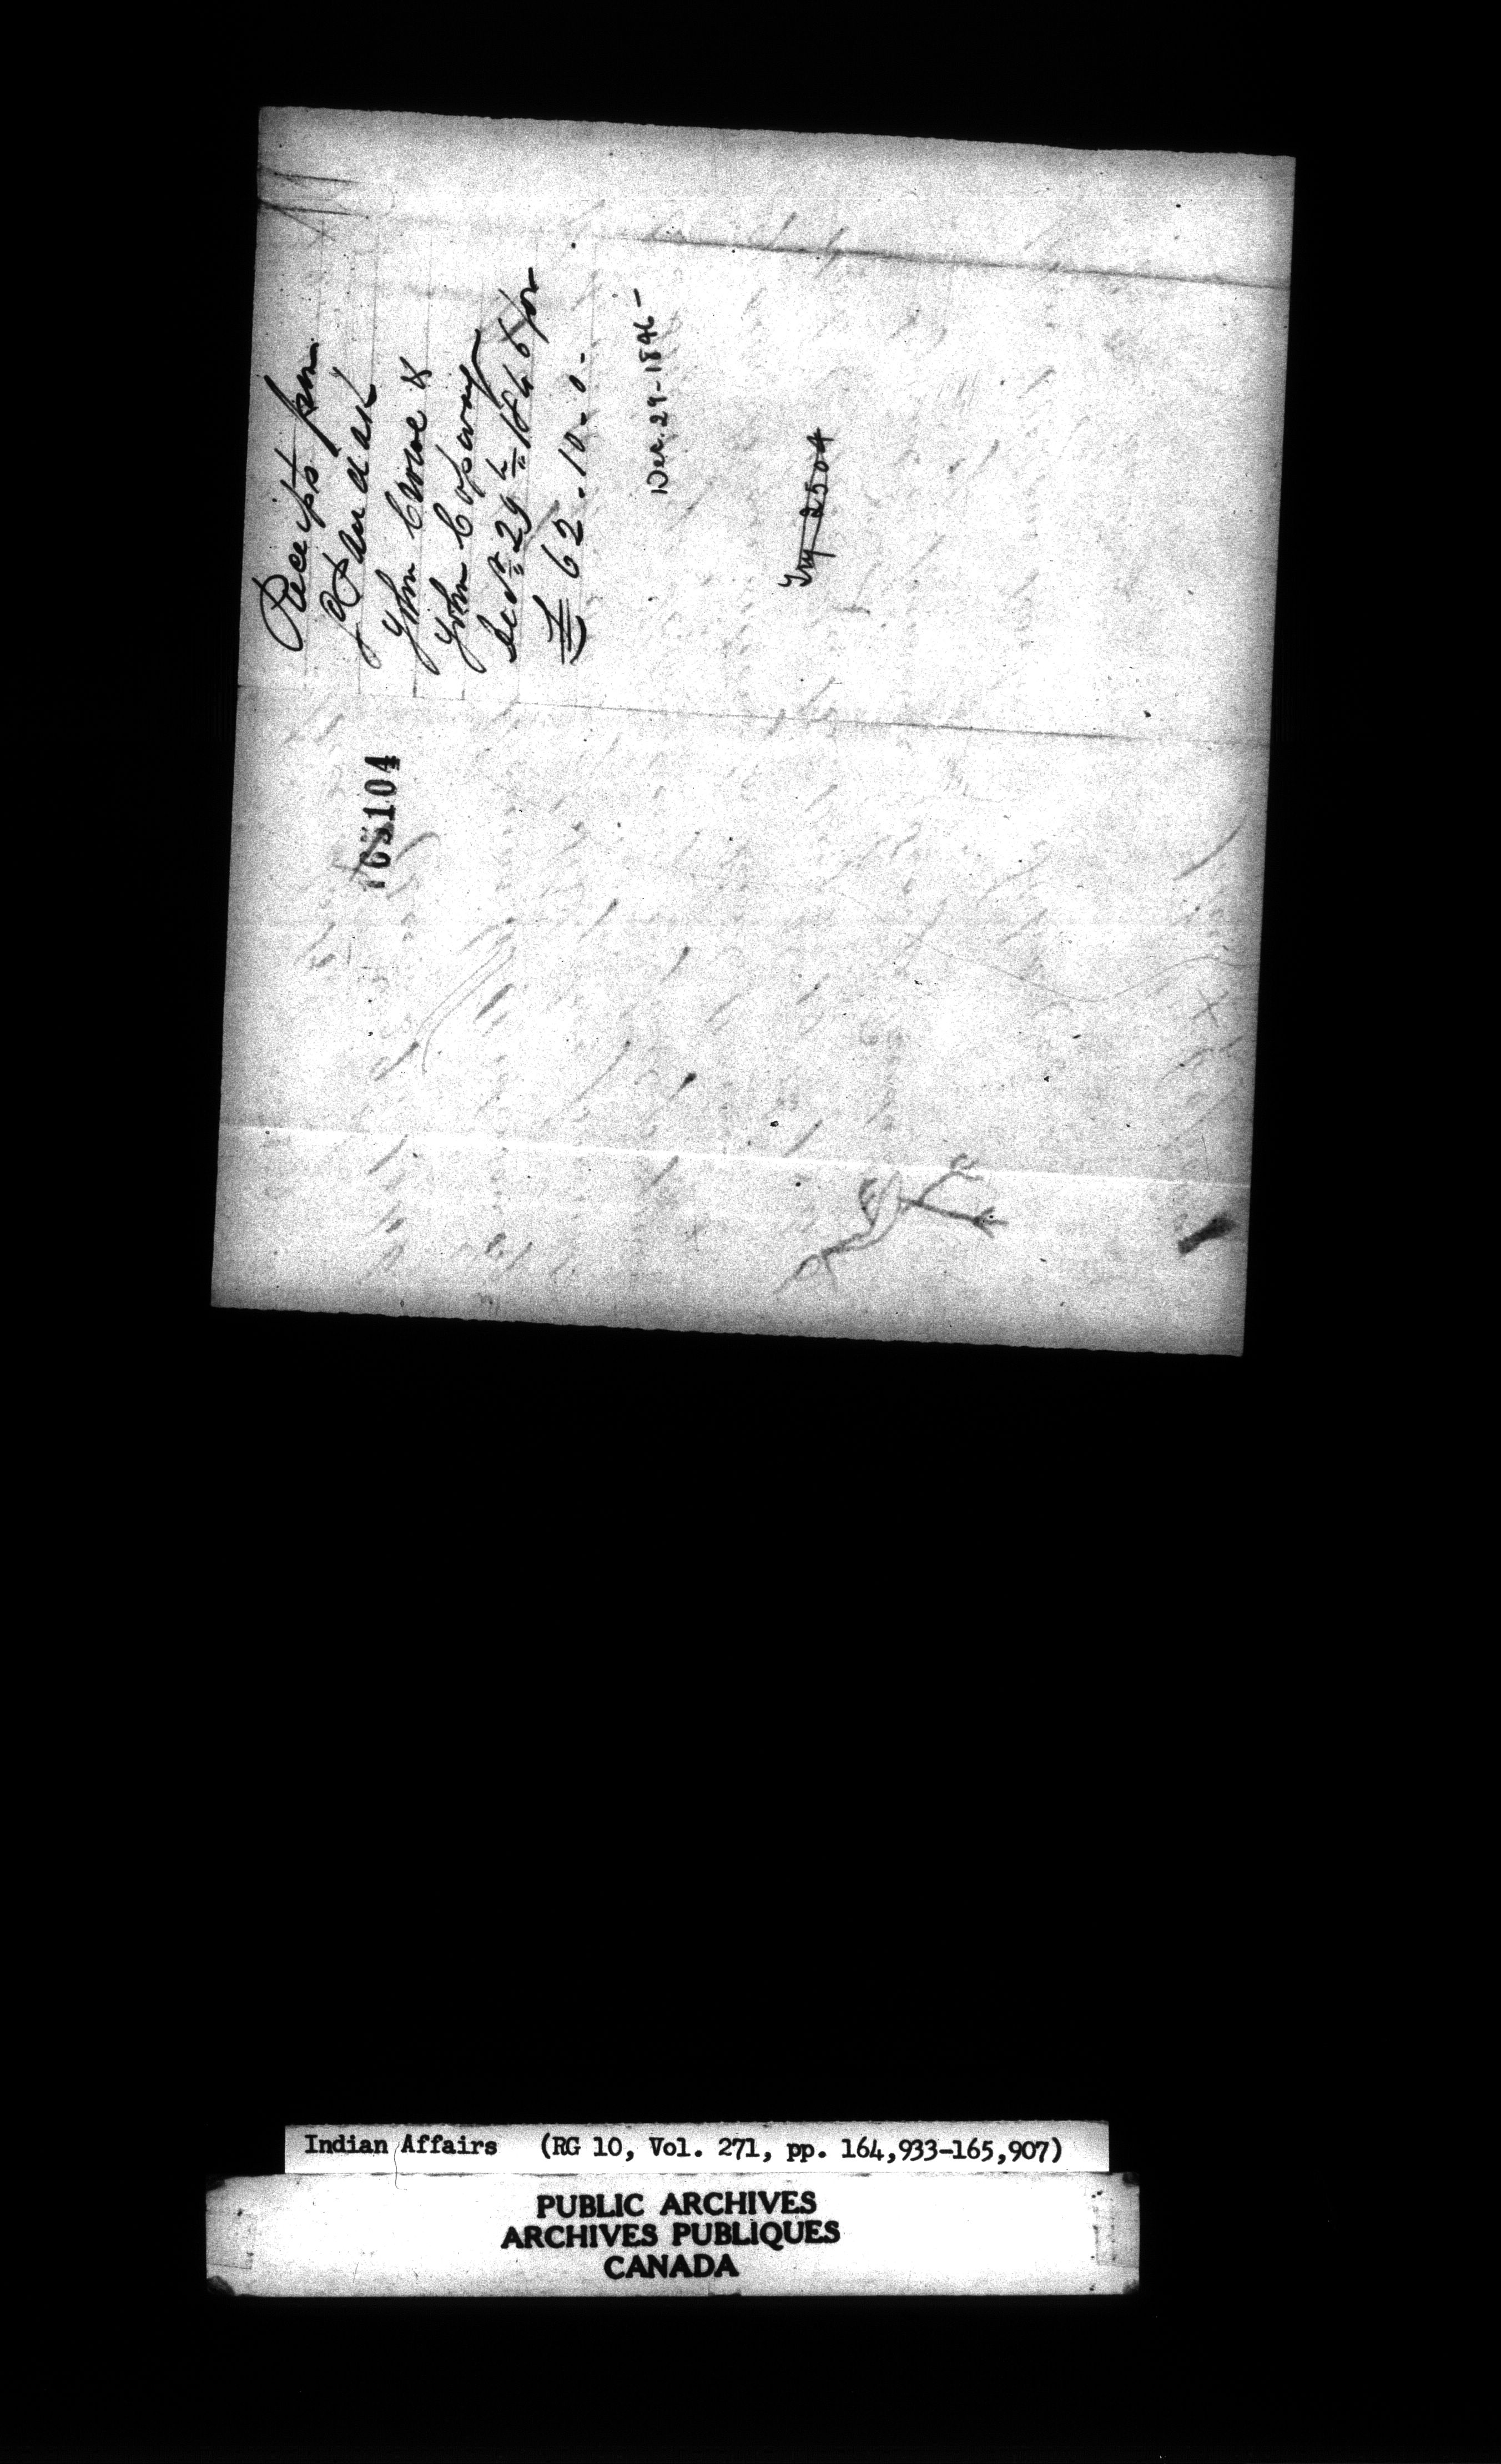 Receipts from
John Crowe &
John Copway
Dec^r 29^th 1846 for
£ 62.10.0.-
Dec. 29-1846-
Try 2504
165104
Indian Affairs (RG 10, Vol. 271, pp. 164,933-165,907)
PUBLIC ARCHIVES
ARCHIVES PUBLIQUES
CANADA